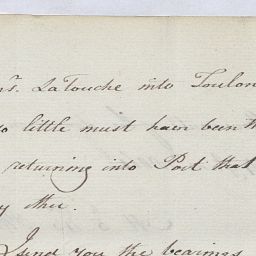 La Touche into Toulon
so little must have been th
returning into Port that
y other.
I send you the bearings